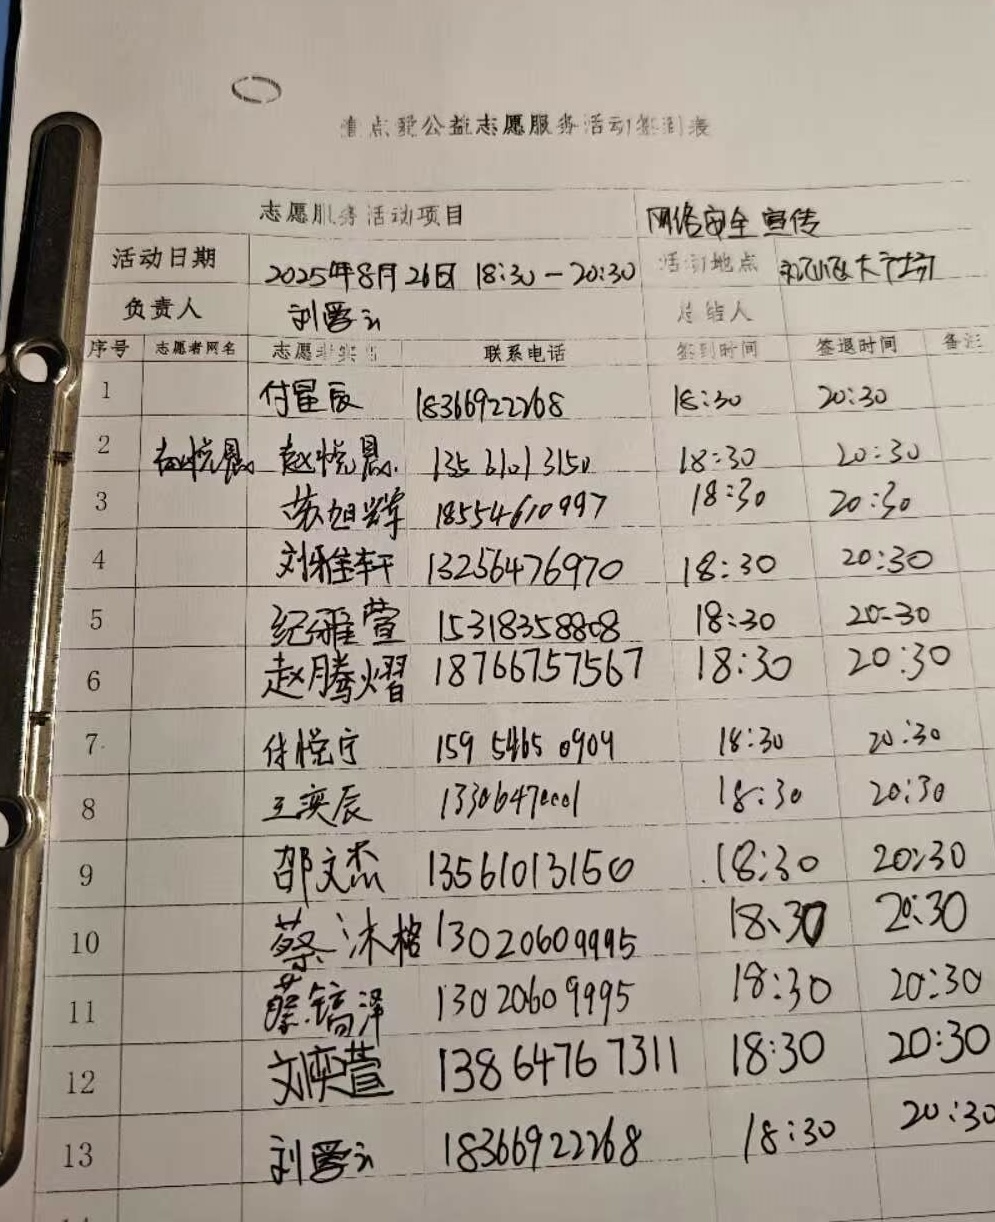 点爱公益志愿服务活动签到表
志愿服务活动项目 网络安全宣传
活动日期 2025年8月26日 18:30-20:30 活动地点 大广场
负责人 刘 总结人
序号 志愿者网名 志愿者实 联系电话 签到时间 签退时间 备注
1 付星辰 18366922268 18:30 20:30
2 赵悦晨 赵悦晨. 13561013150 18:30 20:30
3 苏旭辉 18554610997 18:30 20:30
4 刘雅轩 13256476970 18:30 20:30
5 纪雅萱 15318358808 18:30 20-30
6 赵腾熠 18766757567 18:30 20:30
7 悦宁 159 5465 0909 18:30 20:30
8 王奕辰 13306470001 18:30 20:30
9 邵文杰 13561013150 18:30 20:30
10 蔡沐格 13020609995 18:30 20:30
11 蔡镐泽 13020609995 18:30 20:30
12 刘奕萱 13864767311 18:30 20:30
13 刘 18366922268 18:30 20:30